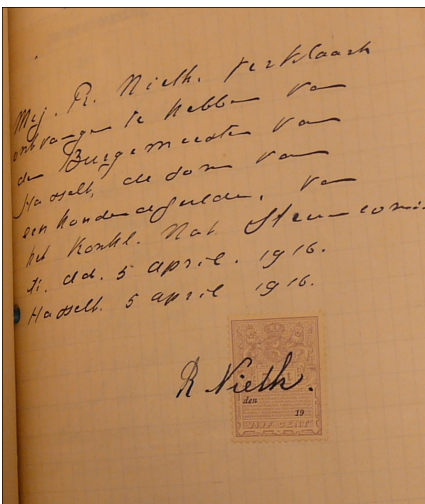 Mej. R. Nieth. verklaard
ontvangen te hebben van
den Burgemeester van
Hasselt, de som van
een honderd gulden, van
het Konkl. Nat. Steun comi-
té. dd. 5 april. 1916.
Hasselt. 5 april 1916.
R Nieth.
den
19
VIJF CENT